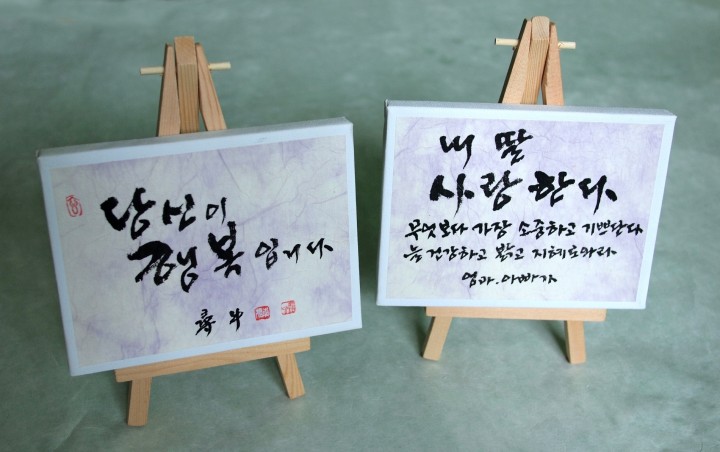 당신이
행복입니다
내 딸
사랑한다
무엇보다 가장 소중하고 기쁘단다
늘 건강하고 밝고 지혜로와라
엄마.아빠가